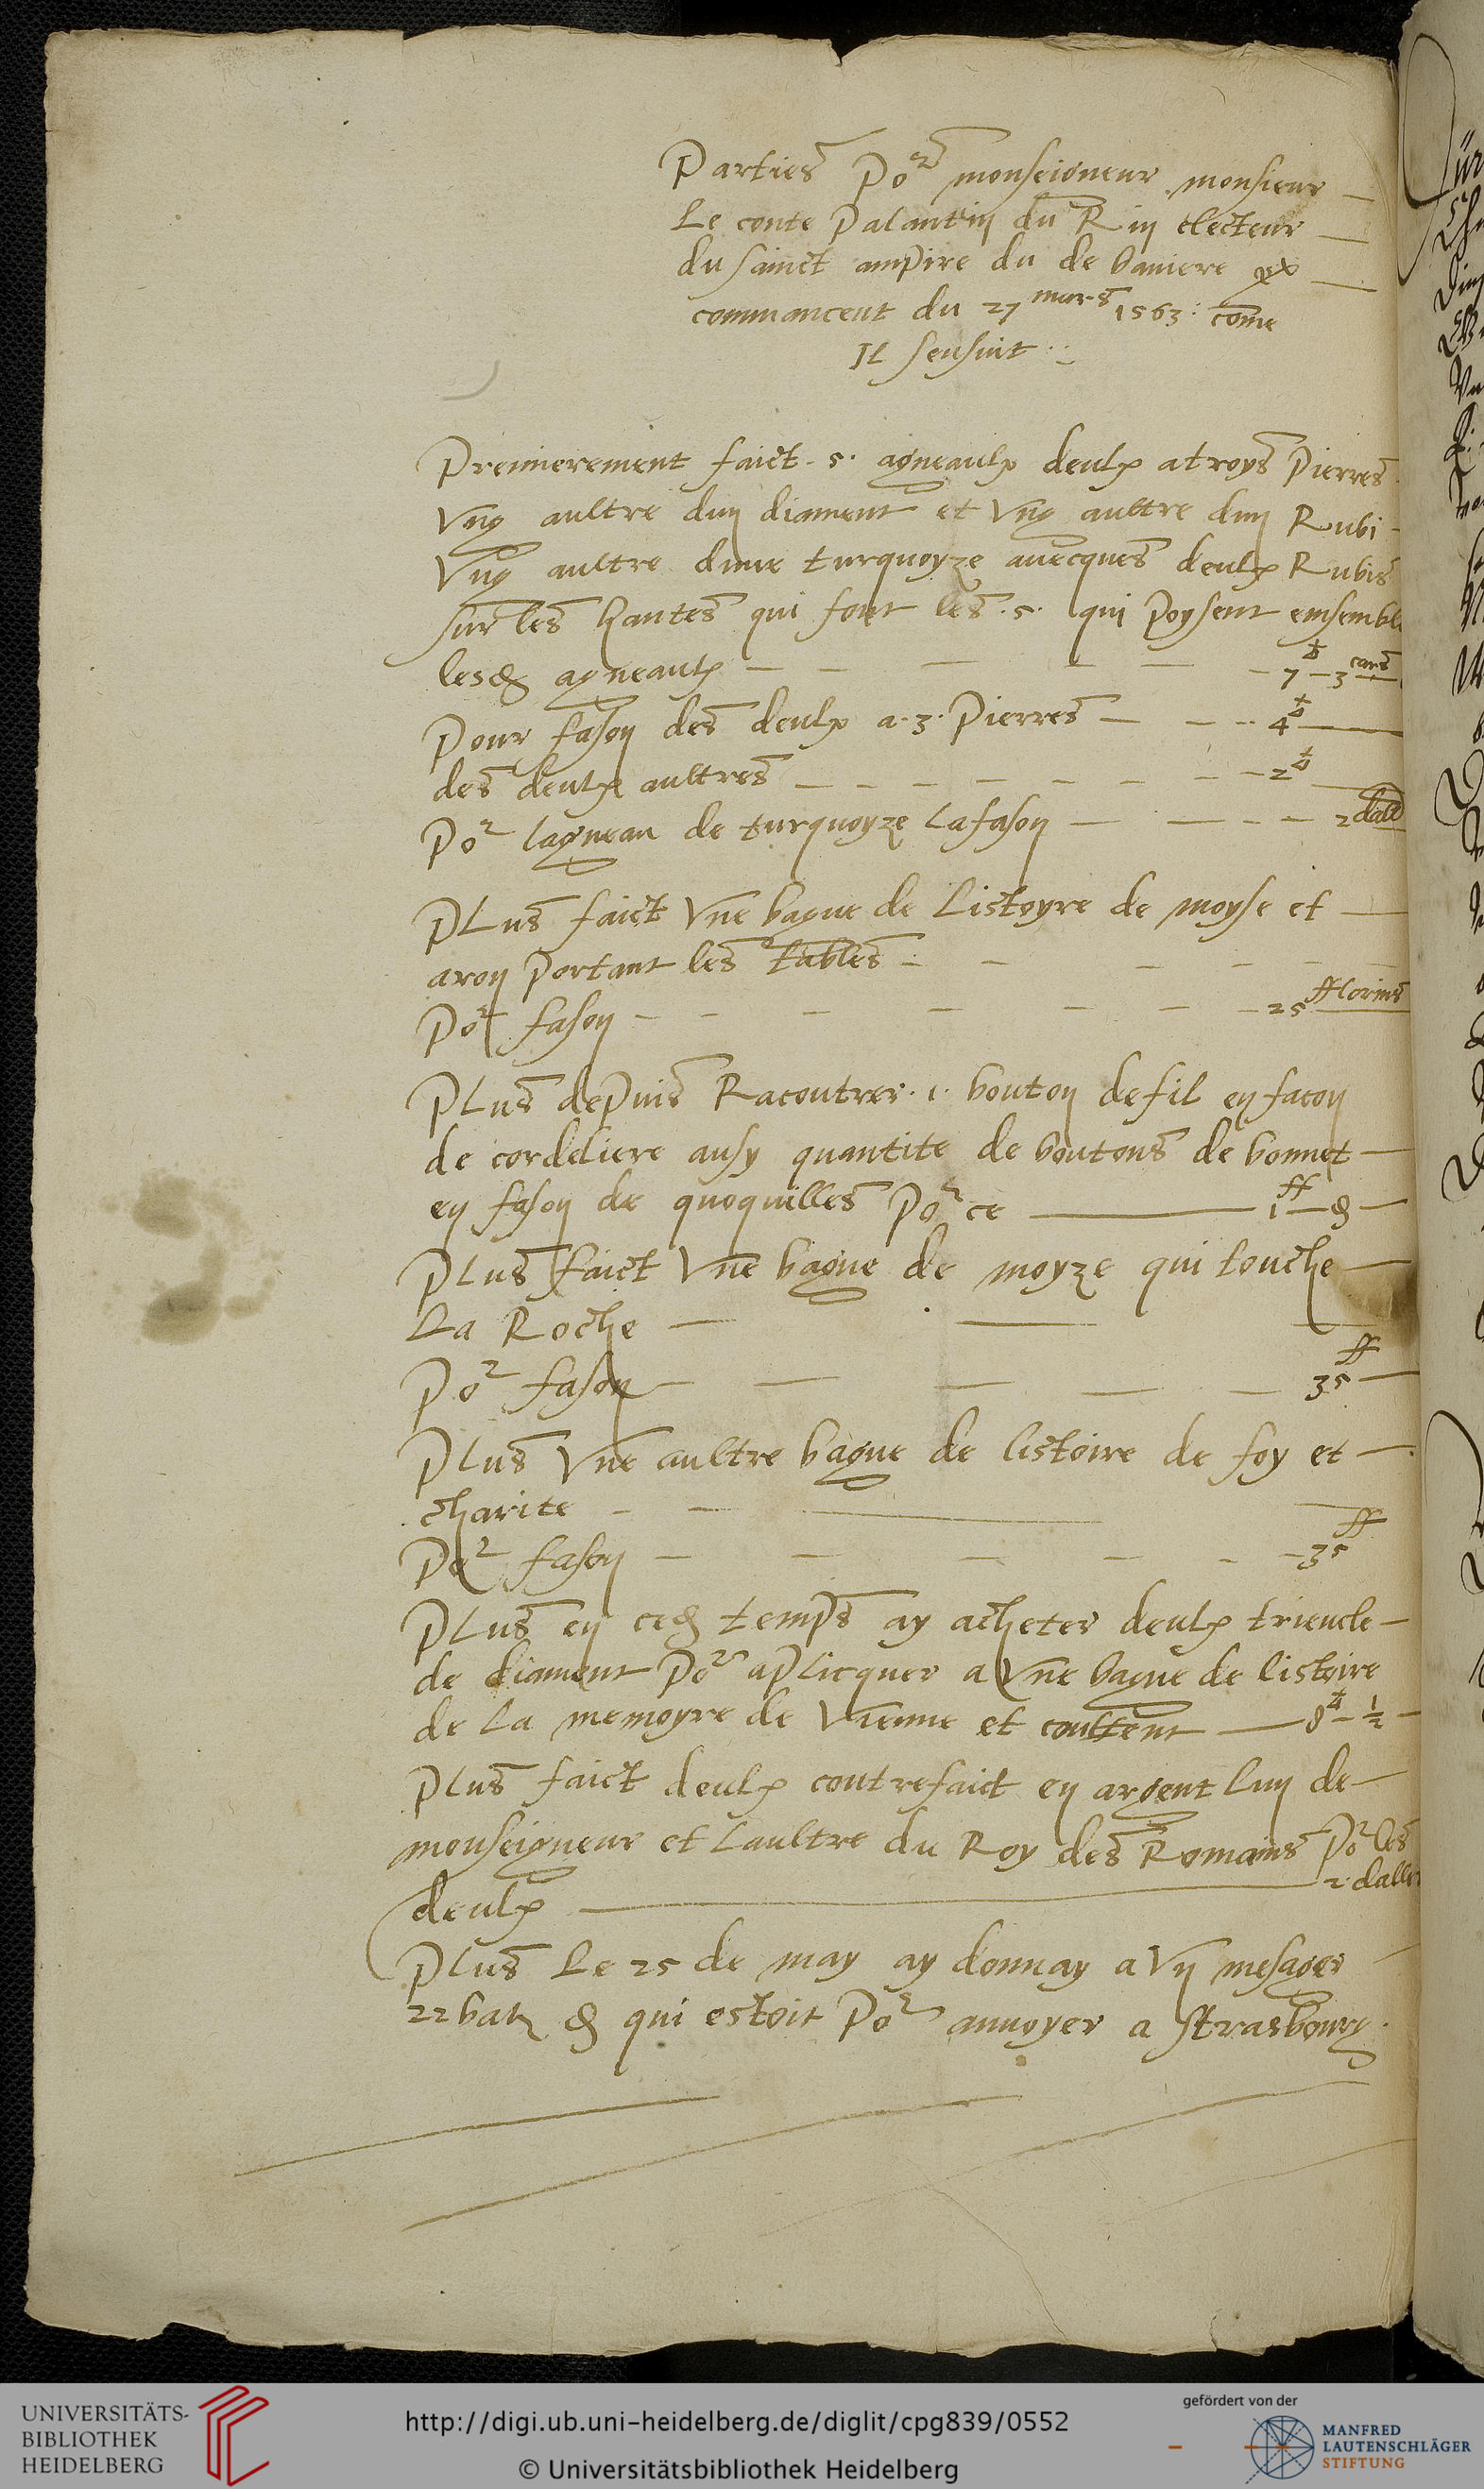 Parties Po^r monseigneur monsieur
Le conte Palantin du Rin electeur
du sainct ampire du de baviere
commancent du 27 mars 1563 : come
Il sensuit
Premierement faict . 5 . agneaulx deulx a troys Pierres
Ung aultre dun diament et Ung aultre dun Rubi
Ung aultre dune turquoyze avecques deulx Rubis
sur les hautes qui font les . 5 . qui Poysent emsemble
lesd agneaulx 7 3 cars
Pour fason des deulx a . 3 . Pierres 4
des deulx aultres 2
Po^r lagneau de turquoyze la fason 2 dall
PLus faict Une bague de Listoyre de moyse et
aron Portant les tables
Po^r fason 25 fflorins
PLus dePuis Racoutrer . 1 . bouton de fil en facon
de cordeliere ausy quantite de boutons de bonnet
en fason de quoquilles Po^r ce 1 ff
PLus faict Une bague de moyze qui touche
La Roche
Po^r fason 35 ff
PLus Une aultre bague de listoire de foy et
charite
Po^r fason 35 ff
PLus en ced temps ay acheter deulx triencle
de diament Po^r aPlicquer a Une bague de listoire
de La memoyre de Vienne et couttent 8 1/2
PLus faict deulx contrefaict en argent Lun de
monseigneur et Laultre du Roy des Romains Po^r les
deulx 2 daller
PLus Le 25 de may ay donnay a Un mesager
22 batz qui estoit Po^r anvoyer a strasbourg .
UNIVERSITÄTS-
BIBLIOTHEK
HEIDELBERG
http://digi.ub.uni-heidelberg.de/diglit/cpg839/0552
© Universitätsbibliothek Heidelberg
gefördert von der
MANFRED
LAUTENSCHLÄGER
STIFTUNG